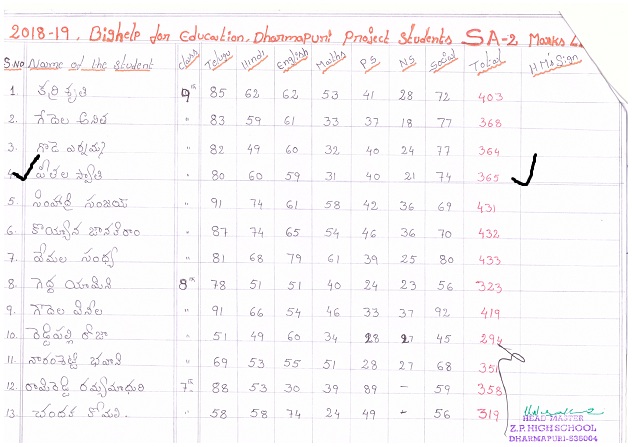 2018-19, Bighelp for Education, Dharmapuri Project Students SA-2 Marks
S.No Name of the Student class Telugu Hindi English Maths P.S N.S Social Total H.M's Sign
1. కర్రి కృతి 9th 85 62 62 53 41 28 72 403
2. గేదెల అనిత " 83 59 61 33 37 18 77 368
3. " 82 49 60 32 40 24 77 364
4. స్వాతి " 80 60 59 31 40 21 74 365
5. సింహాద్రి సంజయ్ " 91 74 61 58 42 36 69 431
6. కొయ్యాన జానకిరాం " 87 74 65 54 46 36 70 432
7. వేమల సంధ్య " 81 68 79 61 39 25 80 433
8. గెద్ద యామిని 8th 78 51 51 40 24 23 56 323
9. గొదెల వినీల " 91 66 54 46 33 37 92 419
10. రెడ్డిపల్లి రోజా " 51 49 60 34 28 27 45 294
11. భవాని " 69 53 55 51 28 27 68 351
12. రామిరెడ్డి రమ్యమాధురి 7th 88 53 30 39 89 - 59 358
13. చందక కోమలి. " 58 58 74 24 49 - 56 319
HEAD MASTER
Z.P. HIGH SCHOOL
DHARMAPURI-535004